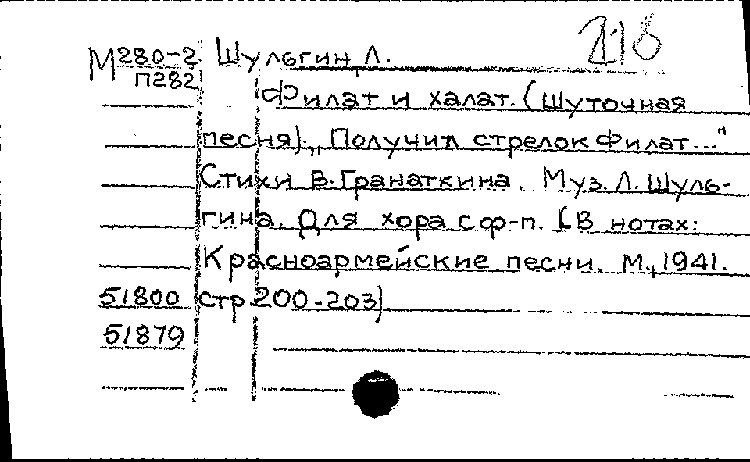 218
М280-2 Шульгин, Л.
П282
Филат и халат. (Шуточная
песня). „Получил стрелок Филат..."
Стихи В. Гранаткина. Муз. Л. Шуль-
гина. Для хора с ф-п. [В нотах:
Красноармейские песни. М., 1941.
51800 стр. 200-203)
51879